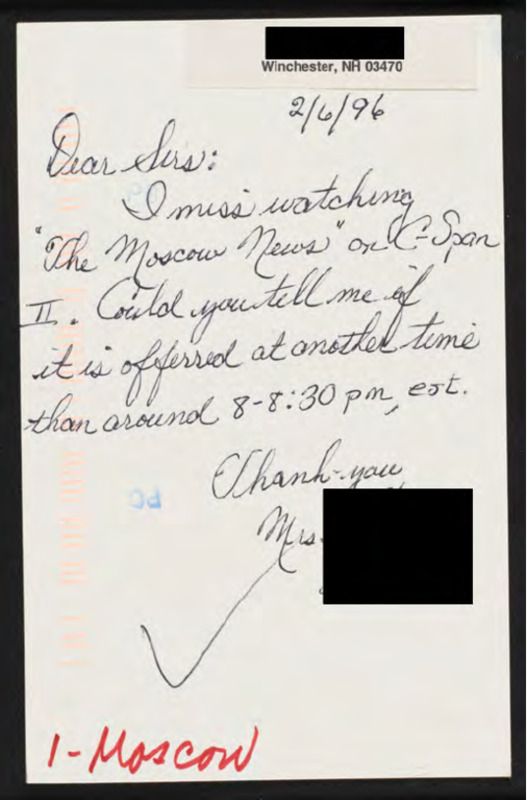 Winchester, NH 03470
2/6/96
Dear Sirs:
I miss watching
"The Moscow News" on C-Span
II. Could you tell me if
it is offerred at another time
than around 8-8:30 pm, est.
Thank-you
PC
Mrs.
1-Moscow